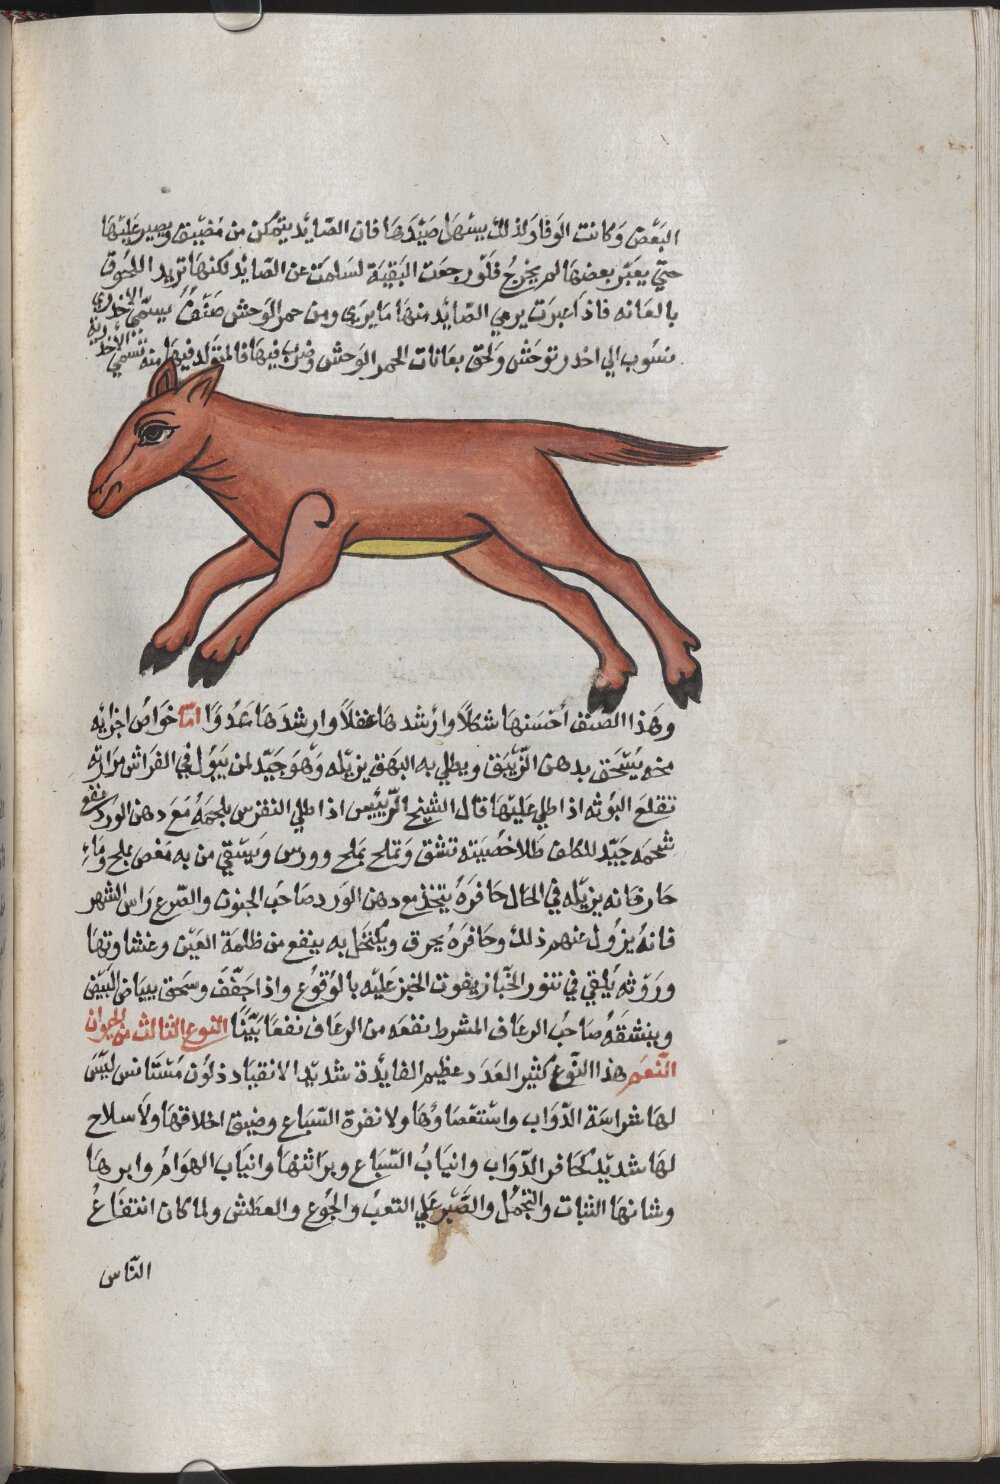 البعض وكانت الوقاد لذلك يسهل صيدها فان الصايد يتمكن من مضيق ويصير عليها
حتي يعبر بعضها لم يخرج فلو رجعت البقية لسلمت عن الصايد لكنها تريد اللحوق
بالعانه فاذا عبرت يرمي الصايد منها ما يري ومن حمر الوحش صنف يسمي الاخدري
منسوب الي اخدر توحش ولحق بعانات الحمر الوحش وضرب فيها فالمتولد فيها منه تسمي الأخدرية
وهذا الصنف أحسنها شكلاً وارشدها عقلاً وارشدها عدوًا امّا خواص اجزايه
مخه يسحق بدهن الزيبق ويطلي به البهق يزيله وهو جيد لمن يبول في الفراش مرارته
تقلع البوثه اذا طلي عليها قال الشيخ الرييس اذا طلي النقرس بلحمه مع دهن الورد نفع
شحمه جيد للكلف طلا خصيته تشق وتملح بملح وورس ويسقي من به مغص بملح وماء
حار فانه يزيله في الحال حافره يتخذ مع دهن الورد صاحب الجنون والصرع راس الشهر
فانه يزول عنهم ذلك وحافره يحرق ويكتحل به ينفع من ظلمة العين وغشاوتها
وروثه يلقي في تنور الخباز يفوت الخبز عليه بالوقوع واذا جفف وسحق ببياض البيض
وينشقه صاحب الرعاف المشرط نفعه من الرعاف نفعًا بيّنًا النوع الثالث من الحيوان
النعم هذا النوع كثير العدد عظيم الفايدة شديد الانقياد ذلون مستانس ليس
لها شراسة الدواب واستعصاؤها ولا نفرة السباع وضيق اخلاقها ولا سلاح
لها شديد كحافر الدواب وانياب السباع وبراثنها وانياب الهوام وابرها
وشانها الثبات والتجمل والصبر علي التعب والجوع والعطش ولما كان انتفاع
الناس